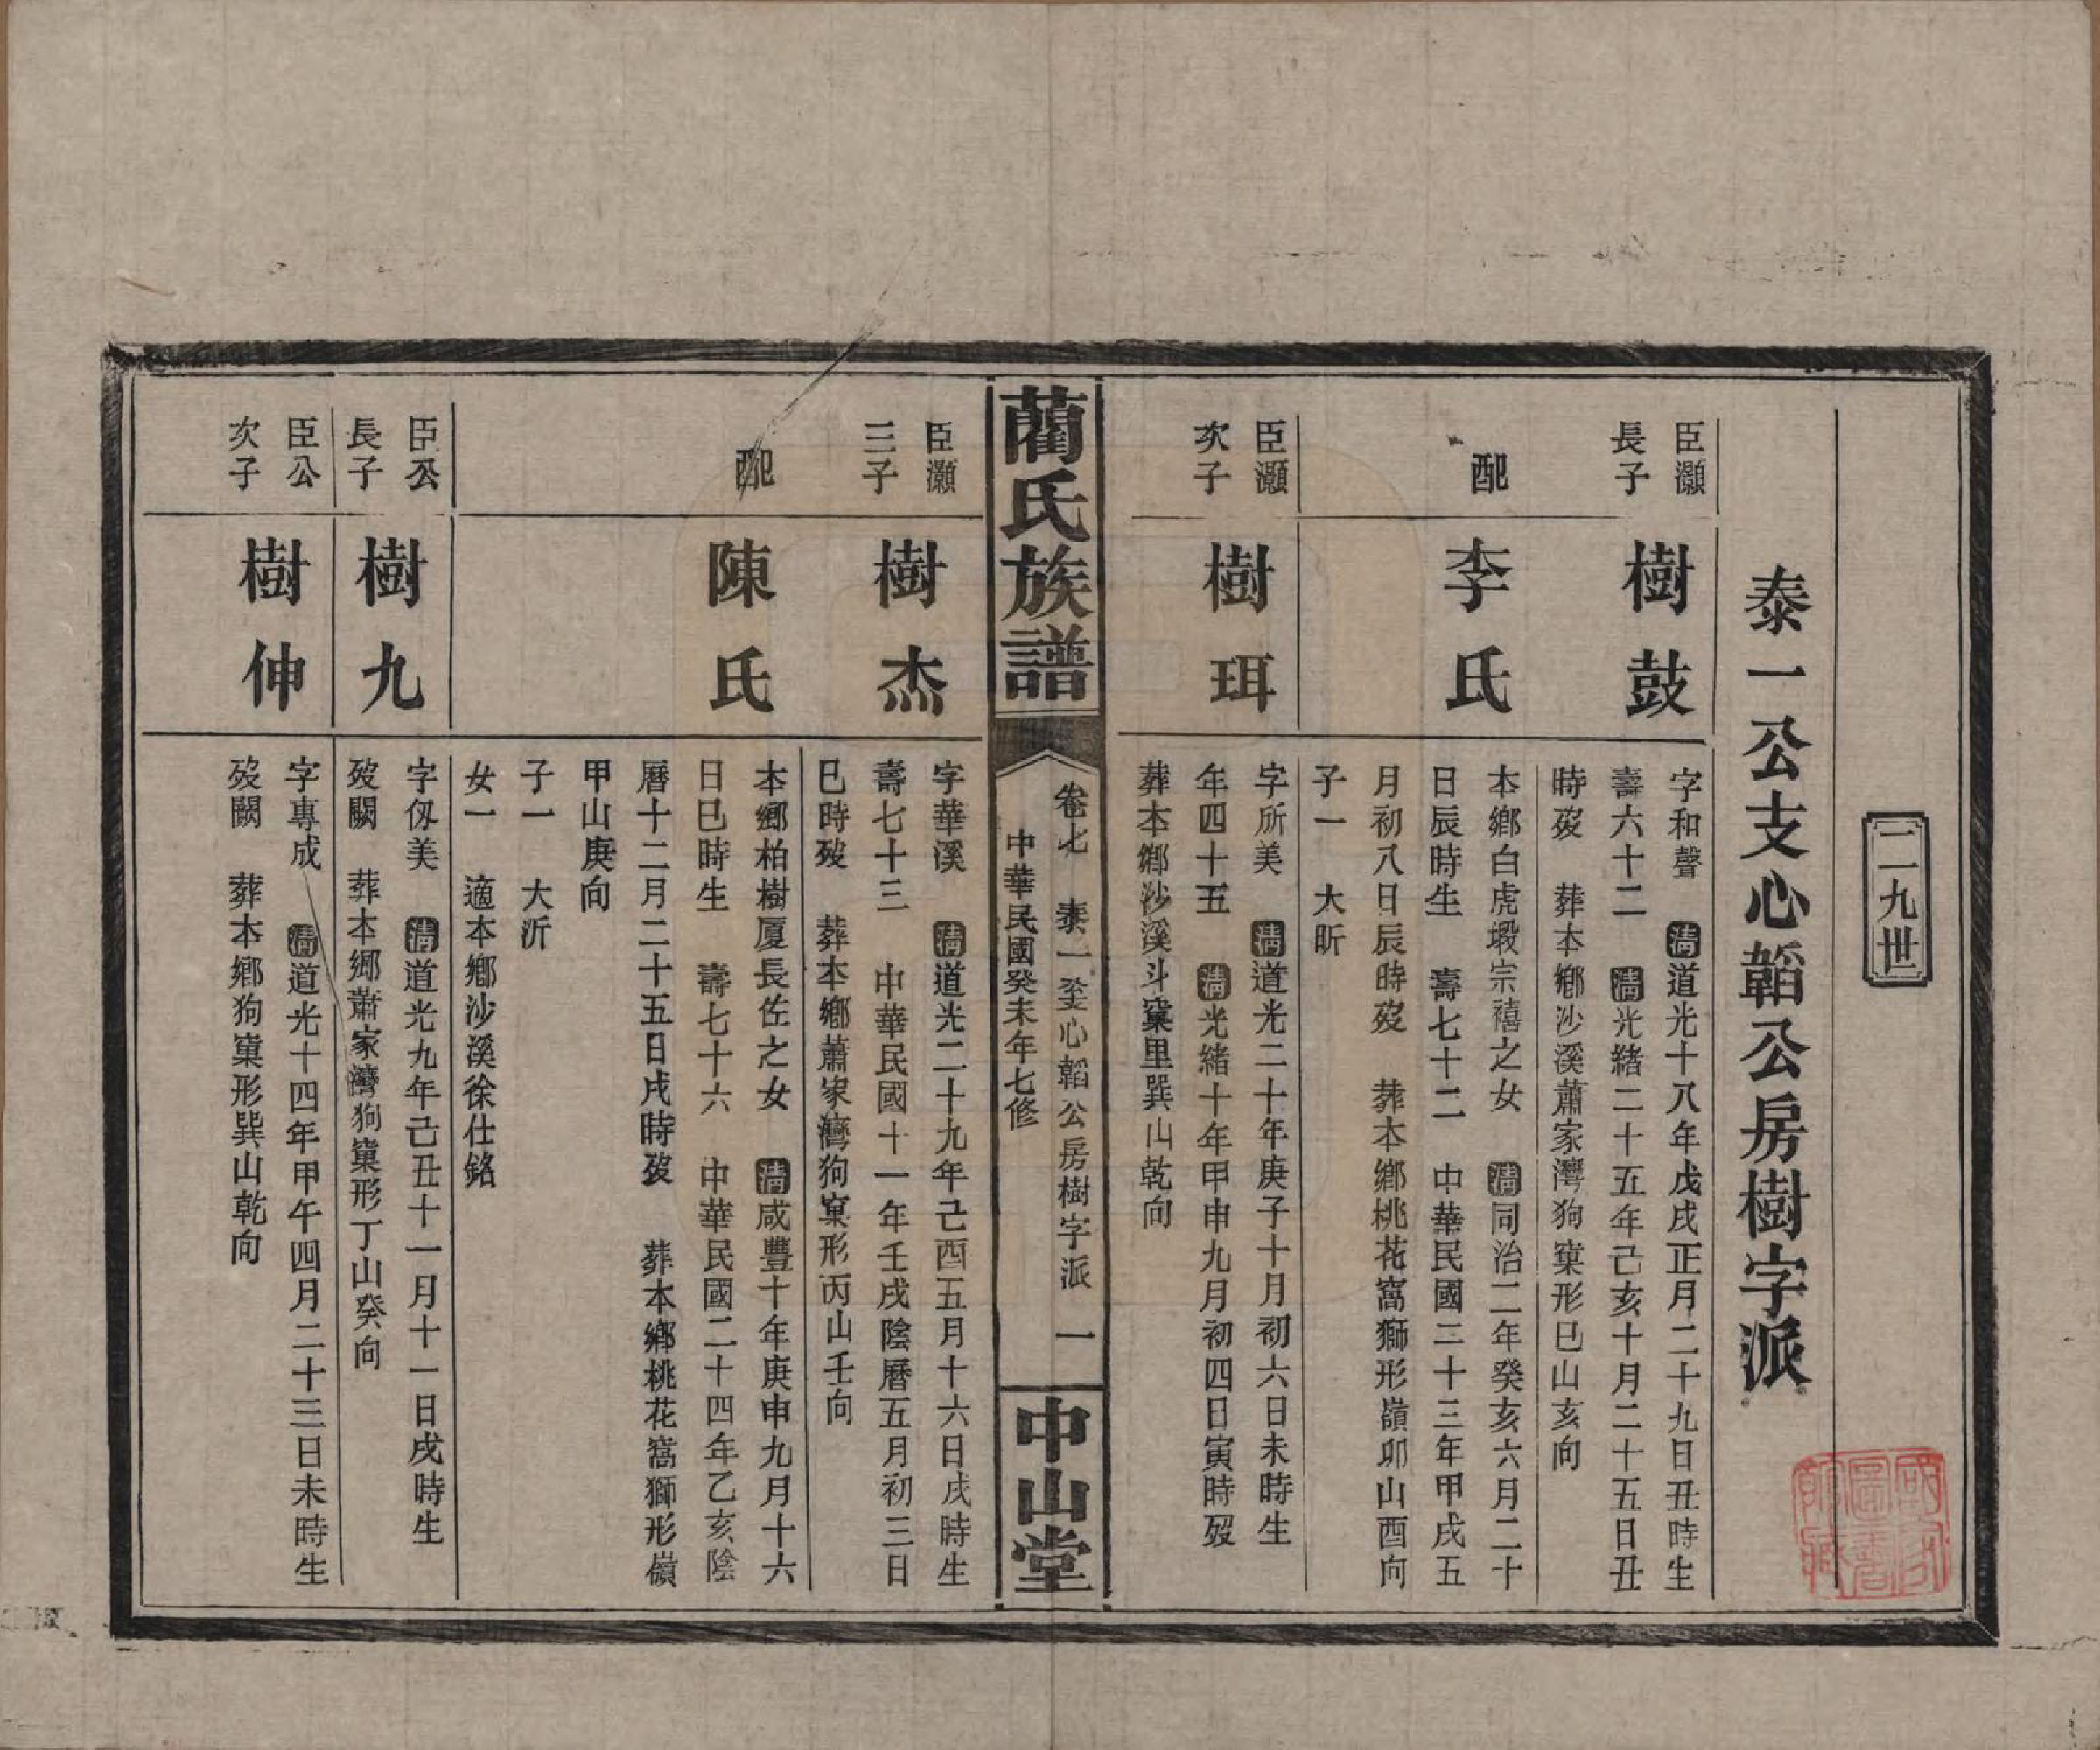 二九世
泰一公支心韜公房樹字派
臣灝
長子
樹鼓
字和聲 清道光十八年戊戌正月二十九日丑時生
壽六十二 清光緒二十五年己亥十月二十五日丑
時歿 葬本鄉沙溪蕭家灣狗窠形巳山亥向
配
李氏
本鄉白虎塅宗禧之女 清同治二年癸亥六月二十
日辰時生 壽七十二 中華民國二十三年甲戌五
月初八日辰時歿 葬本鄉桃花窩獅形嶺卯山酉向
子一 大昕
臣灝
次子
樹珥
字所美 清道光二十年庚子十月初六日未時生
年四十五 清光緒十年甲申九月初四日寅時歿
葬本鄉沙溪斗窠里巽山乾向
藺氏族譜
卷七 泰一 心韜公房樹字派 一
中華民國癸未年七修
中山堂
臣灝
三子
樹杰
字華溪 清道光二十九年己酉五月十六日戌時生
壽七十三 中華民國十一年壬戌陰曆五月初三日
巳時歿 葬本鄉蕭家灣狗窠形丙山壬向
配
陳氏
本鄉柏樹厦長佐之女 清咸豐十年庚申九月十六
日巳時生 壽七十六 中華民國二十四年乙亥陰
曆十二月二十五日戌時歿 葬本鄉桃花窩獅形嶺
甲山庚向
子一 大沂
女一 適本鄉沙溪徐仕銘
臣公
長子
樹九
字伋美 清道光九年己丑十一月十一日戌時生
歿闕 葬本鄉蕭家灣狗窠形丁山癸向
臣公
次子
樹伸
字專成 清道光十四年甲午四月二十三日未時生
歿闕 葬本鄉狗窠形巽山乾向